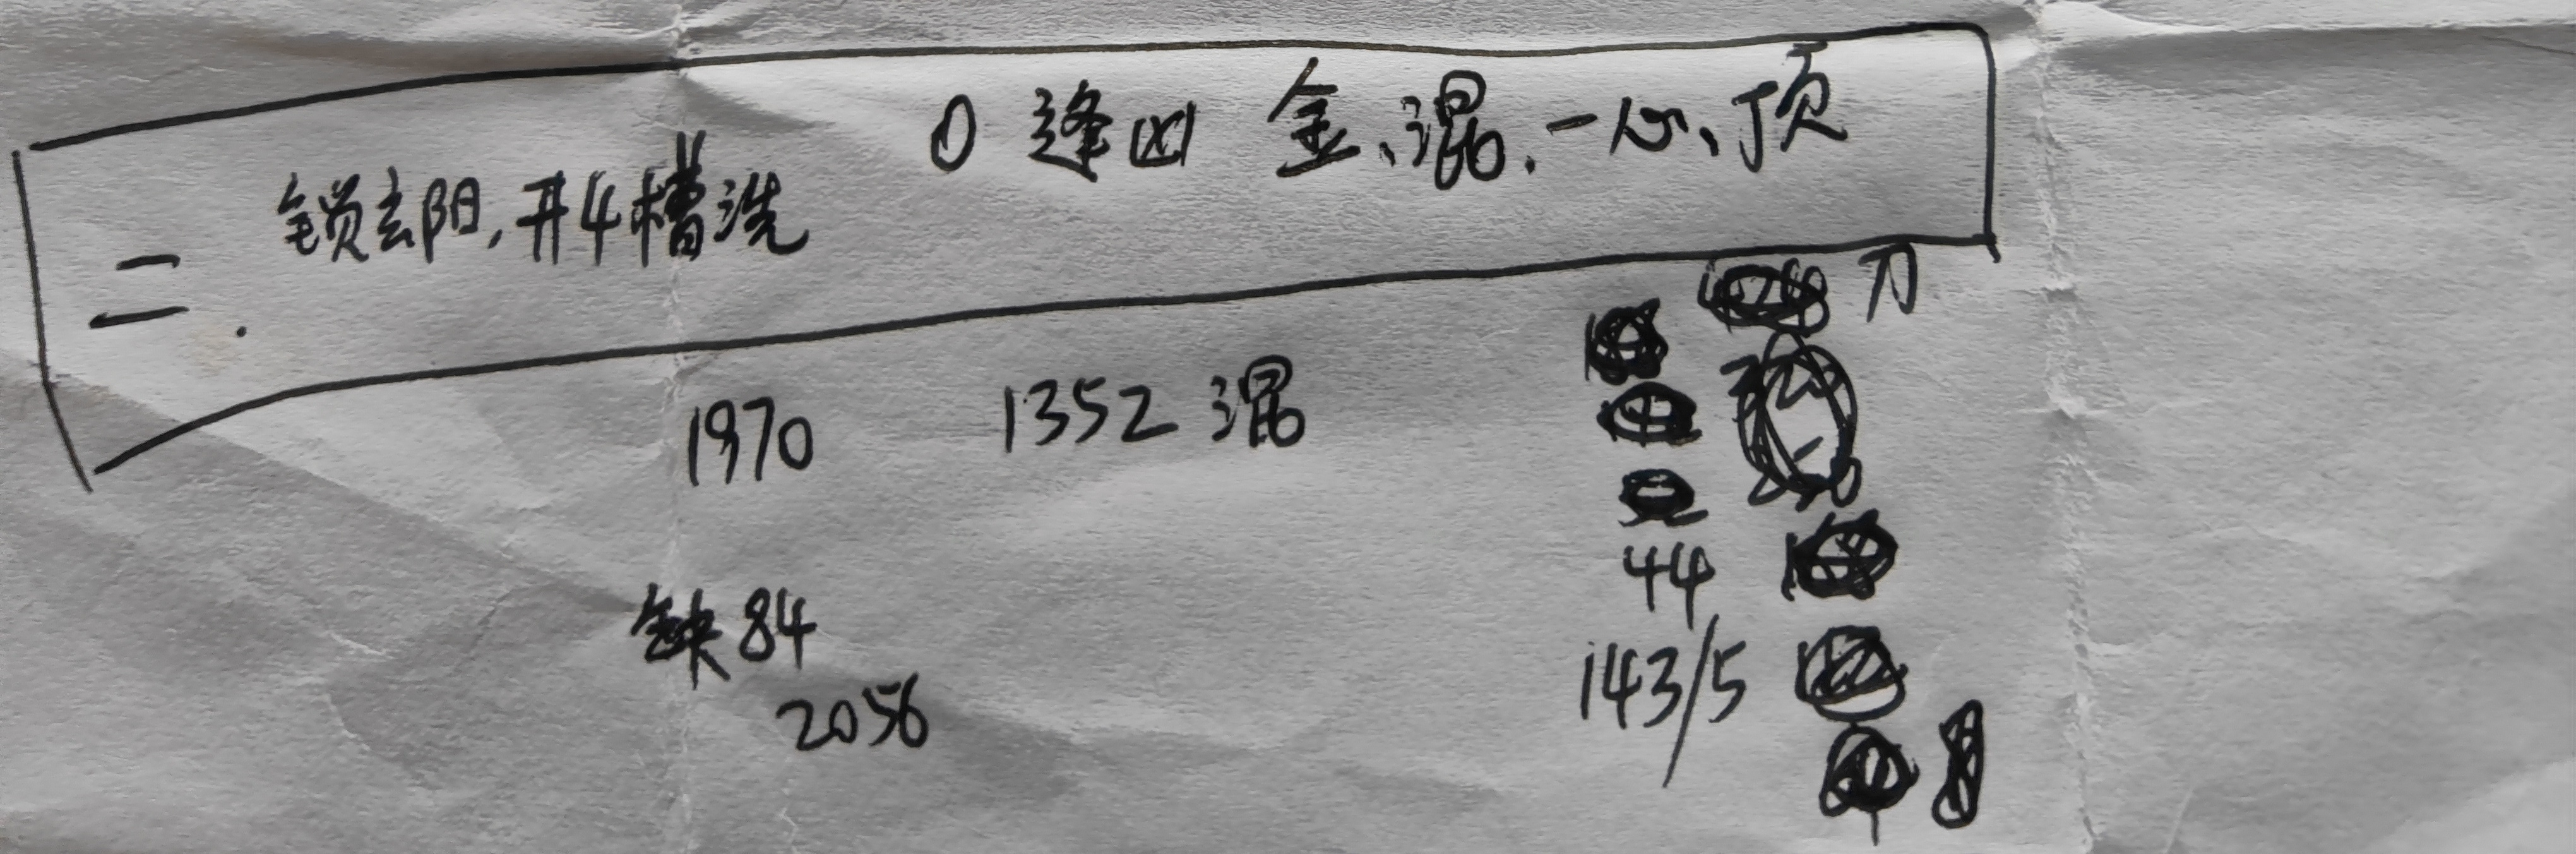 0 逢凶 金、混、一心、顶
二. 锁去阳,开4槽洗
刀
1970 1352 混
44
缺84
143/5
2056